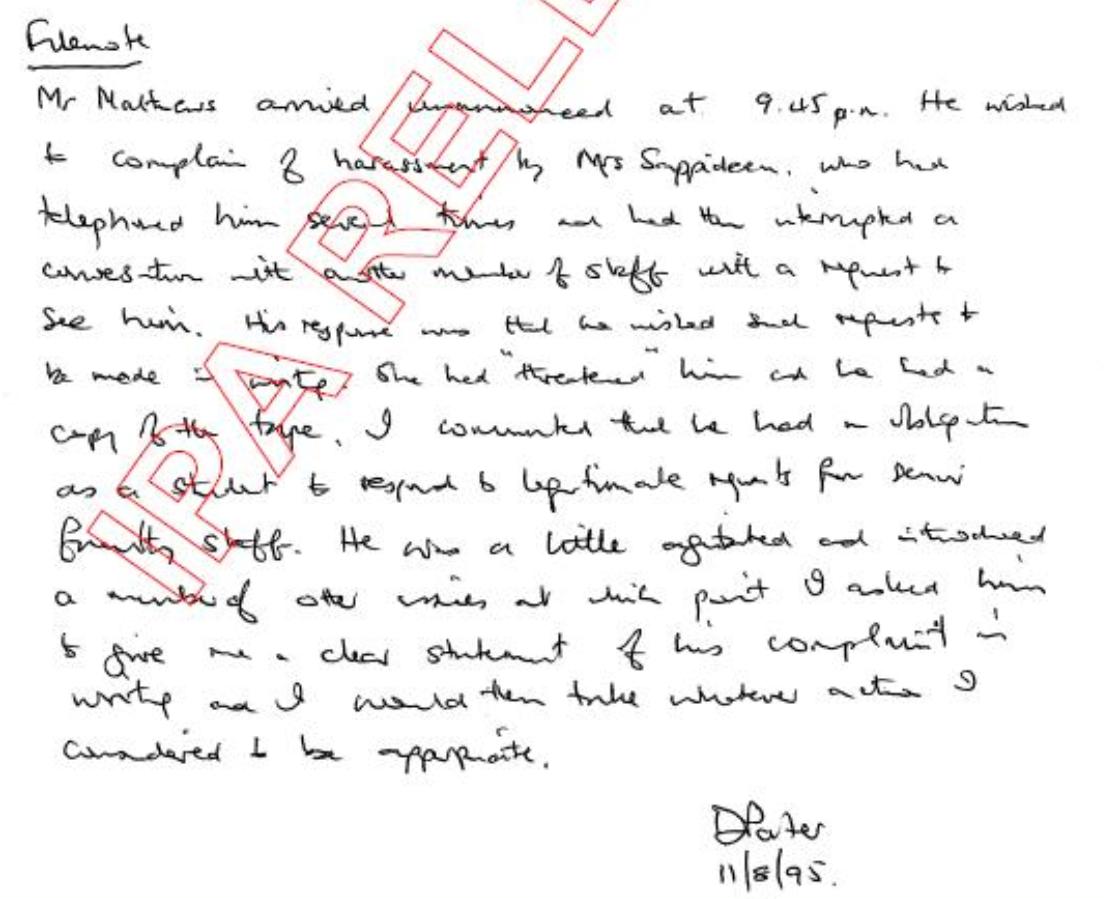 Filenote
Mr Matthews arrived unannounced at 9.45 p.m. He wished
to complain of harassment by Mrs Sappideen, who had
telephoned him several times and had then interrupted a
conversation with another member of staff with a request to
see him. His response was that he wished such requests to
be made in writing. She had "threatened" him and he had a
copy of the tape. I commented that he had an obligation
as a student to respond to legitimate requests from senior
faculty staff. He was a little agitated and introduced
a number of other issues at which point I asked him
to give me a clear statement of his complaint in
writing and I would then take whatever action I
considered to be appropriate.
11/8/95.
IPA REL